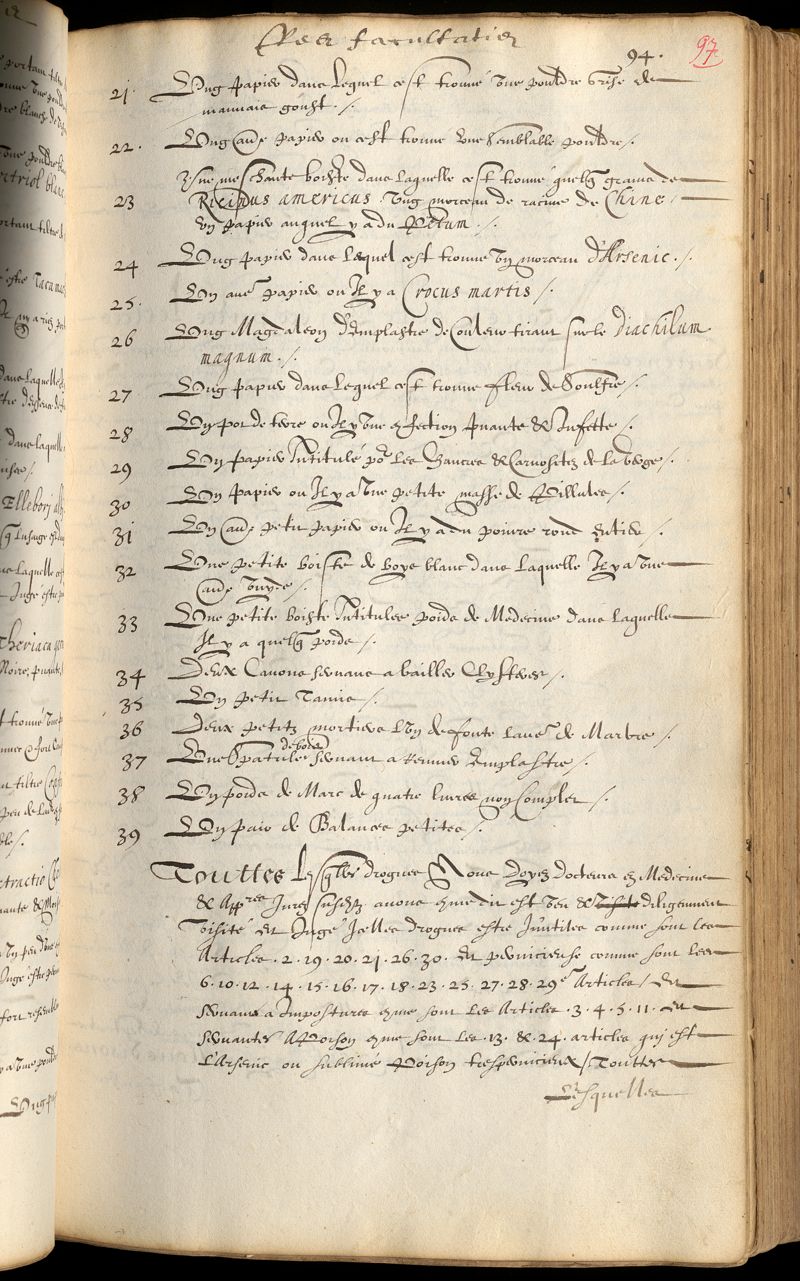 Res facultatis
94.
97
21. Ung papier dans lequel cest trouvé une pouldre grise de
mauvais goust ./.
22. Ung au͞e papier ou cest trouvé une semblable pouldre /.
23 Une meschante boiste dans laquelle cest trouvé quelq͞ grains de
Ricinus americus. Ung morceau de racine de Chine /
un papier auquel y a du Petum ./.
24 Ung papier dans lequel cest trouvé un morceau d'Arsenic ./.
25. Un aue͞ papier ou Il y a Crocus martis /.
26 Ung Magdaleon d'Emplastre de Couleur tirant sur le Diachilum
magnum ./.
27 Ung papier dans lequel cest trouvé fleur de Soulfre /.
28 Un pot de terre ou Il y a une confection puante & Infecte /.
29 Un papier Intitulé po͞ les Chancres & Carnositez de la verge /.
30 Un papier ou Il y a une petite masse de Pillules /.
31 Un au͞e petit papier ou Il y a du poivre rond entier /.
32 Une petite boiste de boys blanc dans laquelle Il y a une
au͞e vuyde /.
33 Une petite boiste Intitulee poids de Medecine dans laquelle
Il y a quelq͞ poids /.
34 Deux Canons servans a bailler Clysteres /.
35 Un petit Tamis /.
36 Deux petitz mortiers l'un de fonte l'aue͞ de Marbre /.
37 Une Spatule de bois servant a remuer Emplastre /.
38 Un poids de Marc de quatre livres non Complet /.
39 Un pair de Balances petites /.
Touttes lesq͞lles drogues Nous Doyen Docteurs en Medecine
& App͞res Jurez susd͞z avons comme dit est veu & visité diligemment
visité et Jugé Icelles drogues estre Inutiles comme sont les
Articles .2.19.20.21.26.30. Et pernicieuse comme sont les
6.10.12.14.15.16.17.18.23.25.27.28.29e Articles / Et
servans a Impostures comme sont les Articles .3.4.5.11. Et
servantes A Poison comme sont les .13. &.24. articles qui est
L'Arsenic ou sublimé Poison trespernicieux /. Touttes
Lesquelles